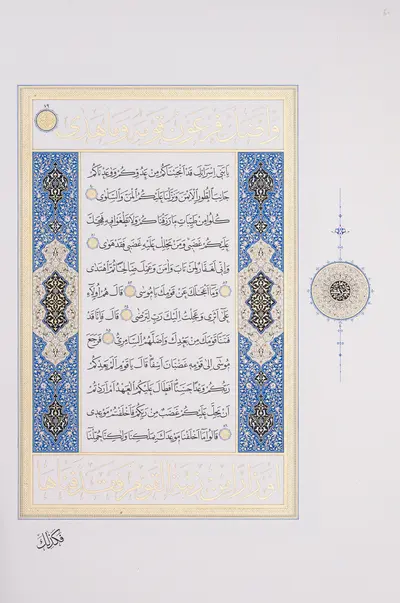 وَأَضَلَّ فِرْعَوْنُ قَوْمَهُ وَمَا هَدَى
يَا بَنِي إِسْرَائِيلَ قَدْ أَنْجَيْنَاكُمْ مِنْ عَدُوِّكُمْ وَوَاعَدْنَاكُمْ
جَانِبَ الطُّورِ الْأَيْمَنَ وَنَزَّلْنَا عَلَيْكُمُ الْمَنَّ وَالسَّلْوَى
كُلُوا مِنْ طَيِّبَاتِ مَا رَزَقْنَاكُمْ وَلَا تَطْغَوْا فِيهِ فَيَحِلَّ
عَلَيْكُمْ غَضَبِي وَمَنْ يَحْلِلْ عَلَيْهِ غَضَبِي فَقَدْ هَوَى
وَإِنِّي لَغَفَّارٌ لِمَنْ تَابَ وَآمَنَ وَعَمِلَ صَالِحًا ثُمَّ اهْتَدَى
وَمَا أَعْجَلَكَ عَنْ قَوْمِكَ يَا مُوسَى قَالَ هُمْ أُولَاءِ
عَلَى أَثَرِي وَعَجِلْتُ إِلَيْكَ رَبِّ لِتَرْضَى قَالَ فَإِنَّا قَدْ
فَتَنَّا قَوْمَكَ مِنْ بَعْدِكَ وَأَضَلَّهُمُ السَّامِرِيُّ فَرَجَعَ
مُوسَى إِلَى قَوْمِهِ غَضْبَانَ أَسِفًا قَالَ يَا قَوْمِ أَلَمْ يَعِدْكُمْ
رَبُّكُمْ وَعْدًا حَسَنًا أَفَطَالَ عَلَيْكُمُ الْعَهْدُ أَمْ أَرَدْتُمْ
أَنْ يَحِلَّ عَلَيْكُمْ غَضَبٌ مِنْ رَبِّكُمْ فَأَخْلَفْتُمْ مَوْعِدِي
قَالُوا مَا أَخْلَفْنَا مَوْعِدَكَ بِمَلْكِنَا وَلَكِنَّا حُمِّلْنَا
أَوْزَارًا مِنْ زِينَةِ الْقَوْمِ فَقَذَفْنَاهَا
فَكَذَلِكَ